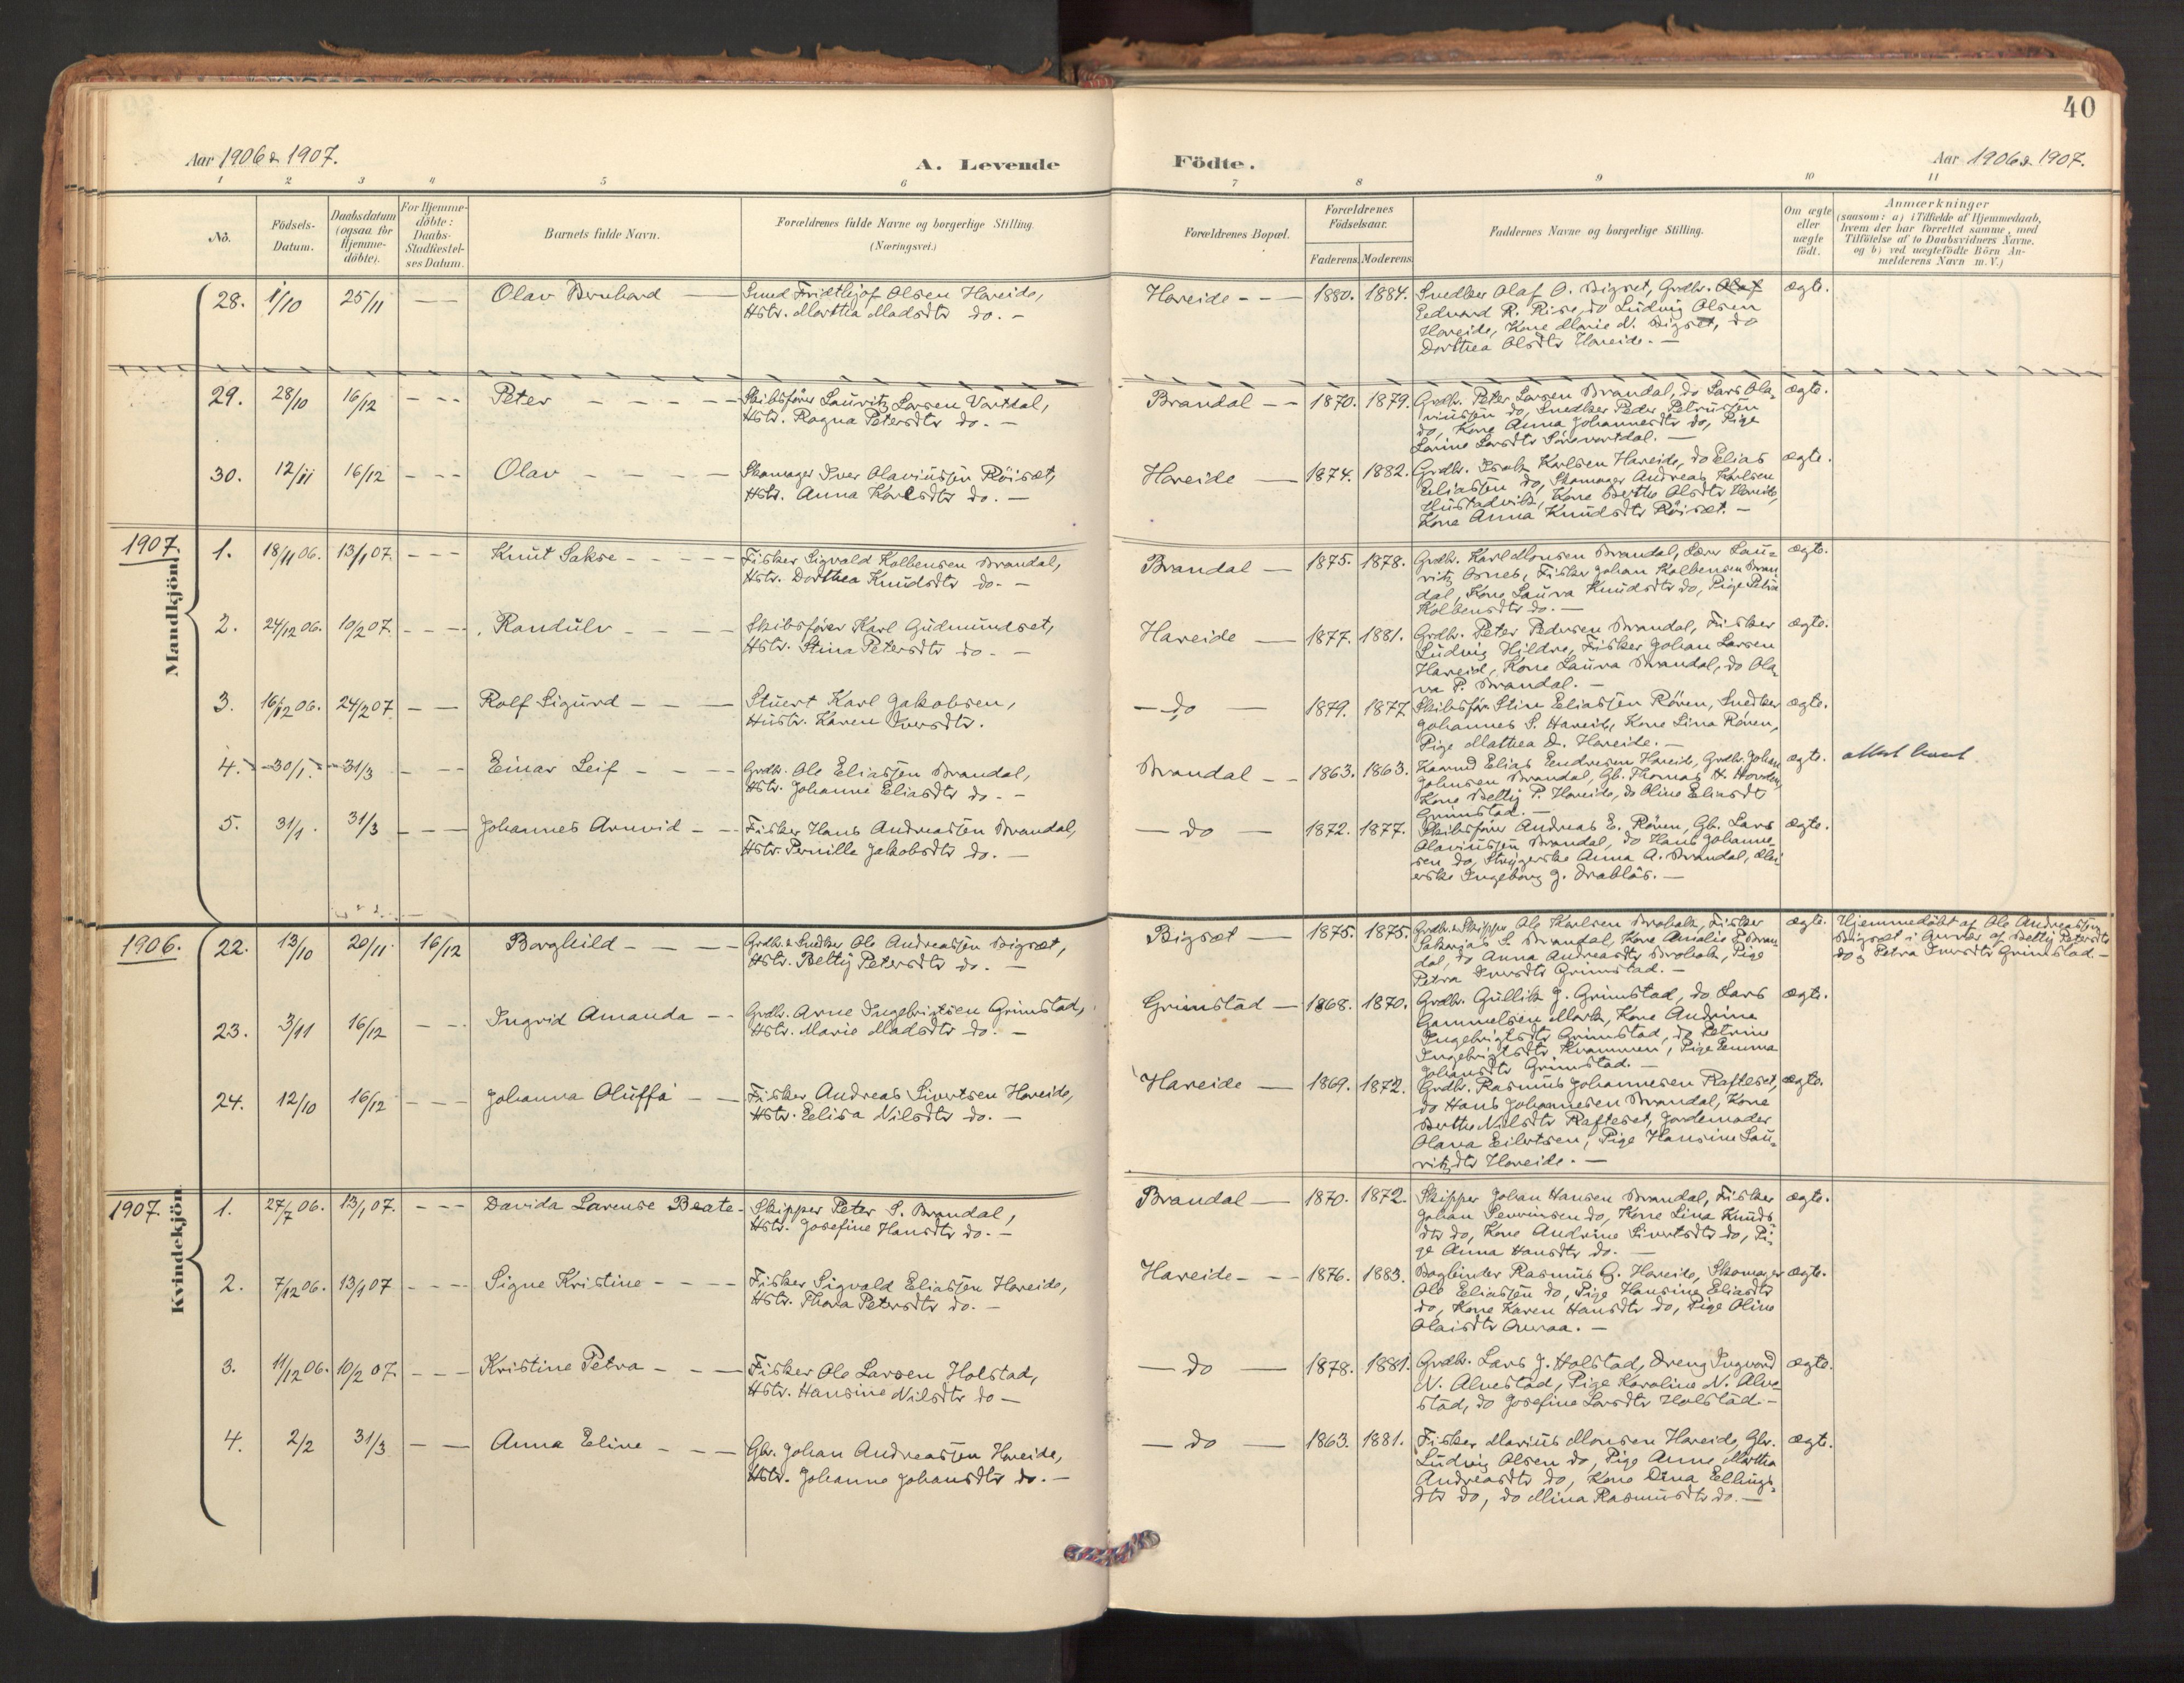 40
Aar 1906 & 1907.
A. Levende Födte.
Aar 1906 & 1907.
1 2 3 4 5 6 7 8 9 10 11
No.
Födsels-Datum.
Daabsdatum (ogsaa for Hjemme-döbte).
For Hjemme-döbte: Daabs-Stadfæstel-ses Datum.
Barnets fulde Navn.
Forældrenes fulde Navne og borgerlige Stilling.
(Næringsvei.)
Forældrenes Bopæl.
Forældrenes Födselsaar.
Faderens. Moderens.
Faddernes Navne og borgerlige Stilling.
Om ægte eller uægte födt.
Anmærkninger
(saasom: a) i Tilfælde af Hjemmedaab,
hvem der har forrettet samme, med
Tilföielse af to Daabsvidners Navne,
og b) ved uægtefödte Börn An-
melderens Navn m. V.)
Mandkjön.
28. 1/10 25/11 — — Olav Bernhard — Smed Fridthjof Olsen Hareide,
Hstr. Marthea Madsdtr do. —
Hareide - - — 1880. 1884. Snedker Olaf O. Bigset, Grdbr. Olaf
Eedvard R. Rise, do Ludvig Olsen
Hareide, Kone Marie N. Bigset, do
Dorthea Olsdtr Hareide. —
ægte.
29. 28/10 16/12 - - - Peter - - - - Skibsfører Lauritz Larsen Vartdal,
Hstr. Ragna Petersdtr do. —
Brandal - - 1870. 1879. Grdbr. Peter Larsen Brandal, do Lars Ola-
riussen do, Snedker Peder Petrussen
do, Kone Anna Johannesdtr do, Pige
Larine Larsdtr Sørevartdal. —
ægte.
30. 12/11 16/12 - - - Olav - - - - Skomager Iver Olaviussen Röiset,
Hstr. Anna Karlsdtr do. —
Hareide — 1874. 1882. Grdbr. Isak Karlsen Hareide, do Elias
Eliassen do, Skomager Andreas Karlsen
Hustadvik, Kone Berthe Olsdtr Hareide,
Kone Anna Knudsdtr Röiset. —
ægte.
1907.
1. 18/11 06. 13/1 07. - - - Knut Sakse - - - - Fisker Sigvald Kolbensen Brandal,
Hstr. Dorthea Knudsdtr do. -
Brandal — 1875. 1878. Grdbr. Karl Monsen Brandal, Lærer Lau-
ritz Osnes, Fisker Johan Kolbensen Bran
dal, Kone Laura Knudsdtr do, Pige Petra
Kolbensdtr do. —
ægte.
2. 24/12 06. 10/2 07. - - - Randulv - - - - Skibsfører Karl Gudmundset,
Hstr. Stina Petersdtr do. -
Hareide — 1877. 1881. Grdbr. Peter Pedersen Brandal, Fisker
Ludvig Hildre, Fisker Johan Larsen
Hareid, Kone Laura Brandal, do Ola-
va P. Brandal. —
ægte.
3. 16/12 06. 24/2 07. - — Rolf Sigurd - - — Stuert Karl Jakobsen,
Hustr. Karen Iversdtr.
— do — 1879. 1877 Skibsfør. Stin Eliassen Røren, Snedker
Johannes S. Hareide, Kone Lina Røren,
Pige Mathea D. Hareide. —
ægte.
4. 30/1. 31/3 - - - Einar Leif - - - - Grdbr. Ole Eliassen Brandal,
Hstr. Johanne Eliasdtr do. -
Brandal - - 1863. 1863. Kaarmd Elias Eendresen Hareide, Grdbr. Johan
Johnsen Brandal, Gb. Thomas H. Hovden,
Kone Bettzy P. Hareide, do Oline Eliasdt
Grimstad. —
ægte.
5. 31/1. 31/3 - - — Johannes Arnvid - - Fisker Hans Andreassen Brandal,
Hstr. Pernille Jakobsdtr do. —
— do — 1872. 1877. Skibsfører Andreas E. Røren, Gb. Lars
Olaviussen Brandal, do Hans Johanne-
sen do, Strygerske Anna A. Brandal,
Ingeborg J. Drabløs. —
ægte.
1906.
Kvindekjön.
22. 13/10 20/11. 16/12 Borghild - - - - Grdbr. & Snedker Ole Andreassen Bigset,
Hstr. Betty Petersdtr do. —
Bigset — 1875. 1875. Grdbr. & Skipper Ole Karlsen Brobak, Fisker
Sakarias S. Brandal, Kone Amalie Bran
dal, do Anna Andreasdtr Brobak, Pige
Petra Iversdtr Grimstad. —
ægte. Hjemmedøbt af Ole Andreassen
Bigset i Nærvær af Betty Petersdtr
do & Petra Iversdtr Grimstad. —
23. 3/11 16/12 - - Ingrid Amanda - - Grdbr. Arne Ingebrigtsen Grimstad,
Hstr. Marie Madsdtr do. —
Grimstad — 1868. 1870. Grdbr. Gullik J. Grimstad, do Lars
Gammelsen Mork, Kone Andrine
Ingebrigtsdtr Grimstad, do Petrine
Ingebrigtsdtr Kvammen, Pige Emma
Johansdtr Grimstad. —
ægte.
24. 12/10 16/12 - - - Johanna Oluffa - - Fisker Andreas Sivertsen Hareide,
Hstr. Eelisa Nilsdtr do. —
Hareide — 1869. 1872. Grdbr. Rasmus Johannesen Rafteset,
do Hans Johannesen Brandal, Kone
Berthe Nilsdtr Rafteset, Jordemoder
Olava Eilertsen, Pige Hansine Lau-
ritzdtr Hareide. —
ægte.
1907.
1. 27/7 06. 13/1 07. - - - Davida Larense Beate - Skipper Peter S. Brandal,
Hstr. Josefine Hansdtr do. —
Brandal — 1870. 1872. Skipper Johan Hansen Brandal, Fisker
Johan Severinsen do, Kone Lina Knuds
dtr do, Kone Andrine Sivertsdtr do, Pi-
ge Anna Hansdtr do. —
ægte.
2. 7/12 06. 13/1 07 - - - Signe Kristine - - - - Fisker Sigvald Eliassen Hareide,
Hstr. Thora Petersdtr do. —
Hareide - - - 1876. 1883. Bogbinder Rasmus G. Hareide, Skomager
Ole Eliassen do, Pige Hansine Eliasdtr
do, Kone Karen Hansdtr do, Pige Oline
Olaisdtr Overaa. —
ægte.
3. 11/12 06. 10/2 07. - - - Kristine Petra - - — Fisker Ole Larsen Holstad,
Hstr. Hansine Nilsdtr do —
— do — 1878. 1881. Grdbr. Lars J. Holstad, Dreng Ingvard
N. Alvestad, Pige Karoline N. Alve-
stad, do Josefine Larsdtr Holstad. -
ægte.
4. 2/2 31/3 — — Anna Eeline - - — Gbr. Johan Andreassen Hareide,
Hstr. Johanne Johansdtr do. —
— do — 1863. 1881. Fisker Marius Monsen Hareide, Gbr.
Ludvig Olsen do, Pige Anne Martha
Andreasdtr do, Kone Dina Ellings-
dtr do, do Mina Rasmusdtr do. —
ægte.